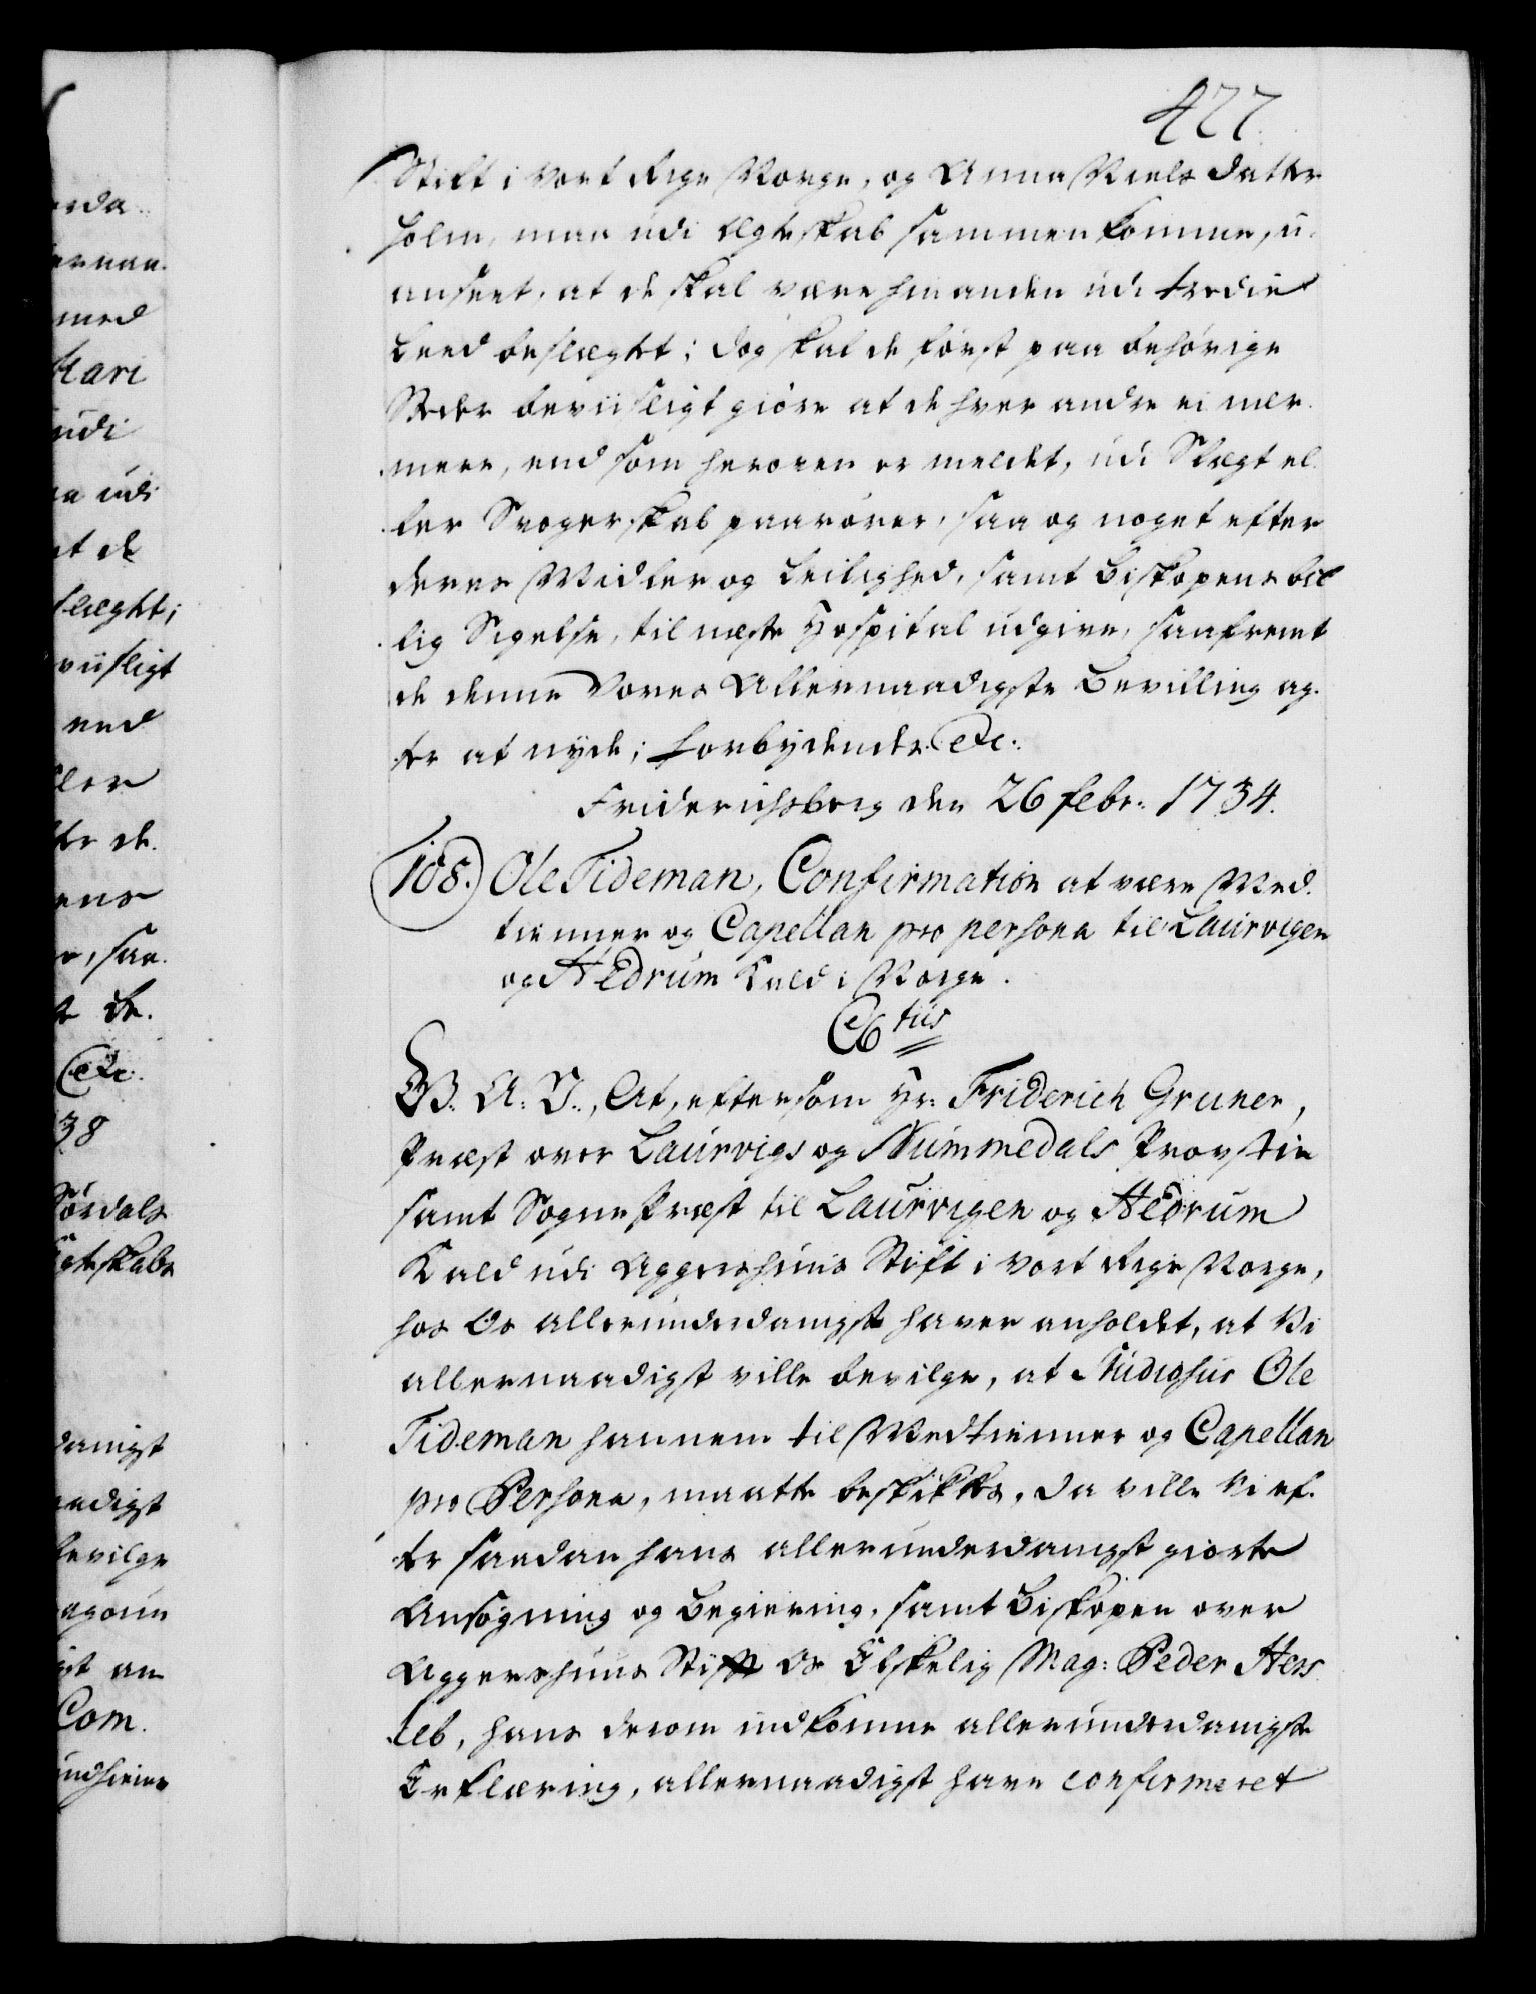 477.
Stift i Vort Rige Norge, og Anna Niels datter
Holm, maa udi Egteskab sammenkomme, u-
anseet, at de skal være hinanden udi tredie
Leed beslægtet; dog skal de først paa behørige
Stæder beviisligt giøre at de hver andre ei nær-
mere, end som hervoven er meldet, udi Slægt el-
ler Svogerskab paarører, saa og noget efter
deres Midler og Leilighed, samt Biskopens bil-
lig Sigelse, til næste Hospital udgive, saafremt
de denne Vores Allernaadigste Bevilling ag-
te at nyde; Forbydende etc:
Friderichsberg den 26 febr: 1734.
108. Ole Tideman, Confirmation at være Med-
tienner og Capellan pro persona til Laurvigen
og Hedrum Kald i Norge.
C6tus
G. A. V., At, eftersom Hr: Friderich Gruner,
Præst over Laurvigs og Nummedals Provstie
samt Sogne Præst til Laurvigen og Hedrum
Kald udi Aggershuus Stift i Vort Rige Norge,
hos Os allerunderdanigst haver anholdet, at Vi
allernaadigst ville bevilge, at Studiosus Ole
Tideman hannem til Medtienner og Capellan
pro Persona, maatte beskikkes, da ville Vi ef-
ter saadan hans allerunderdanigst giorte
Ansøgning og Begiering, samt Biskopen over
Aggershuus Stift Os Elskelig Mag: Peder Hers-
leb, hans derom indkomne allerunderdanigste
Erklæring, allernaadigst have confirmeret